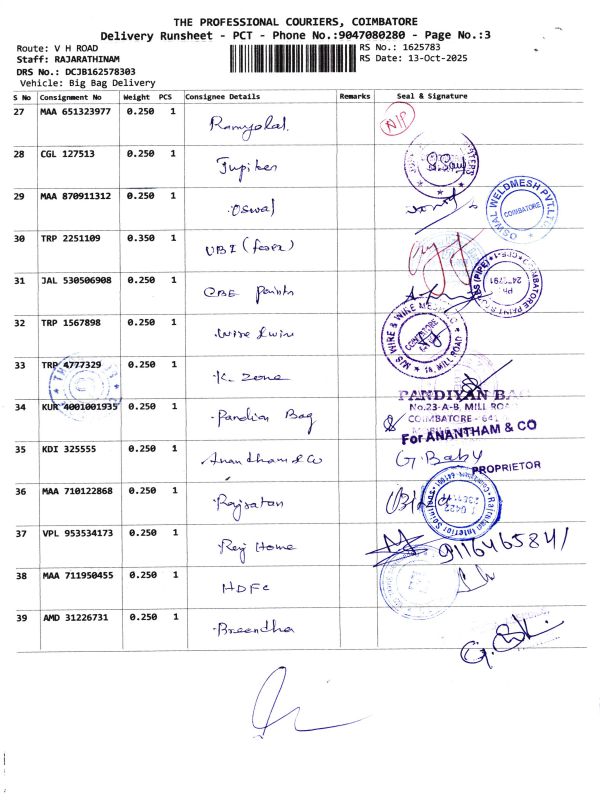 THE PROFESSIONAL COURIERS, COIMBATORE
Delivery Runsheet - PCT - Phone No.:9047080280 - Page No.:3
Route: V H ROAD
RS No.: 1625783
Staff: RAJARATHINAM
RS Date: 13-Oct-2025
DRS No.: DCJB162578303
Vehicle: Big Bag Delivery
S No Consignment No Weight PCS Consignee Details Remarks Seal & Signature
27 MAA 651323977 0.250 1
N/P
28 CGL 127513 0.250 1 Jupiter
29 MAA 870911312 0.250 1 Oswal
OSWAL WELDMESH PVT.LTD.
COIMBATORE
30 TRP 2251109 0.350 1 UBI
31 JAL 530506908 0.250 1 CBE paints
32 TRP 1567898 0.250 1 Wire & Wire
M/S WIRE & WIRE
33 TRP 4777329 0.250 1 K. Zone
34 KUR 4001001935 0.250 1 Pandian Bag
PANDIYAN BAG
No.23-A-B, MILL ROAD
COIMBATORE - 641
For ANANTHAM & CO
35 KDI 325555 0.250 1 Anandham & Co
G. Baby
PROPRIETOR
36 MAA 710122868 0.250 1 Rajsatan
Rajasthan Interior Solutions
0422
37 VPL 953534173 0.250 1 Raj Home
9116465841
38 MAA 711950455 0.250 1 HDFC
39 AMD 31226731 0.250 1 Breendha